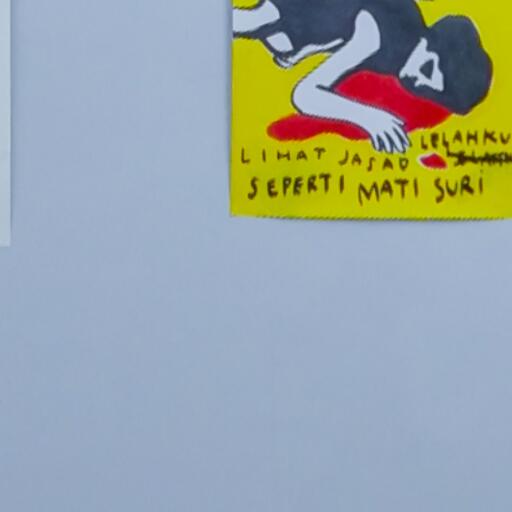 LIHAT JASAD LELAHKU
SEPERTI MATI SURI